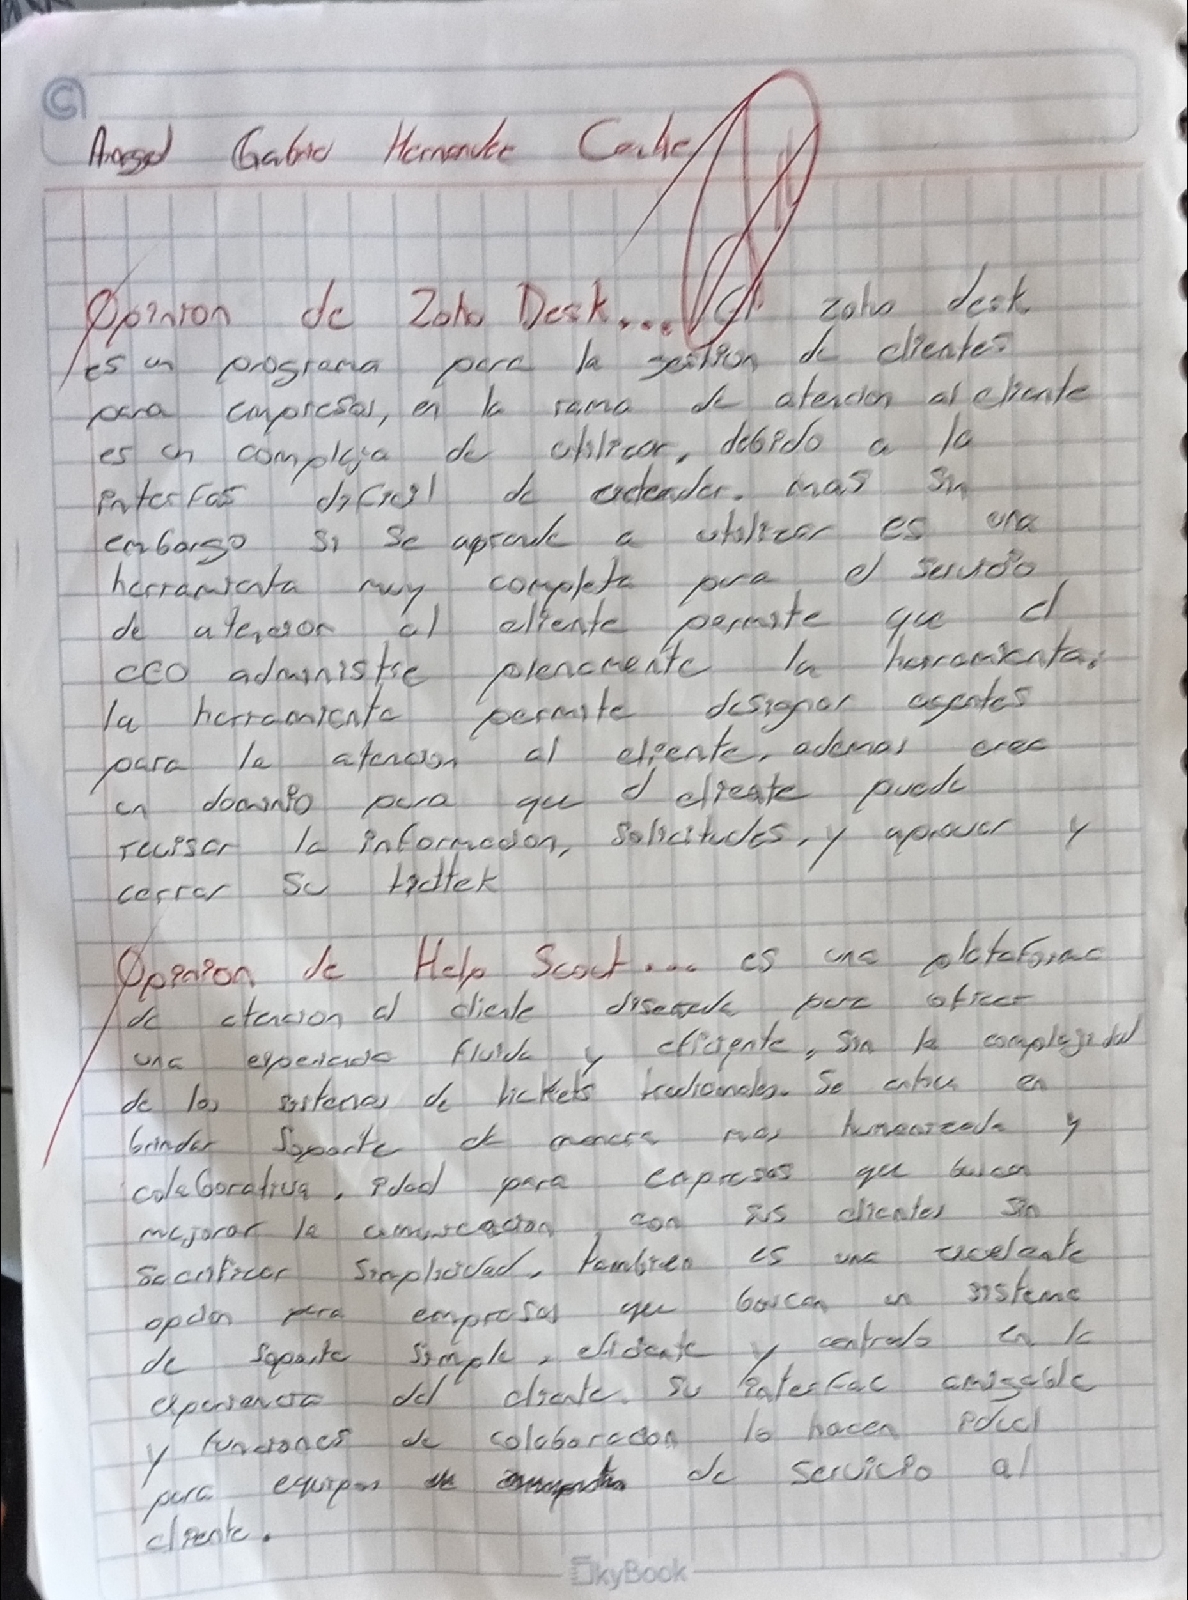 Gabriel Hernandez
Opinion de Zoho Desk... El zoho desk
es un programa para la gestion de clientes
para empresas, en la rama de atencion al cliente
es un compleja de utilizar, debido a la
interfas dificil de entender. mas sin
embargo si se aprende a utilizar es una
herramienta muy completa para el servicio
de atencion al cliente permite que el
CEO administre plenamente la herramienta,
la herramienta permite designar agentes
para la atencion al cliente, ademas crea
un dominio para que el cliente puede
revisar la informacion, solicitudes, y aprovar y
cerrar su
Opinion de Help Scout... es una plataforma
de atencion al cliente diseñada para ofrecer
una experiencia fluida y eficiente, sin la complejidad
de los sistemas de tickets tradicionales. Se enfoca en
brindar soporte de manera mas humanizada y
colaborativa, ideal para empresas que buscan
mejorar la comunicacion con sus clientes sin
sacrificar simplicidad, tambien es una excelente
opcion para empresas que buscan un sistema
de soporte simple, eficiente y centrado en la
experiencia del cliente. Su interfac amigable
y funciones de colaboracion lo hacen ideal
para equipos de servicio al
cliente.
SkyBook